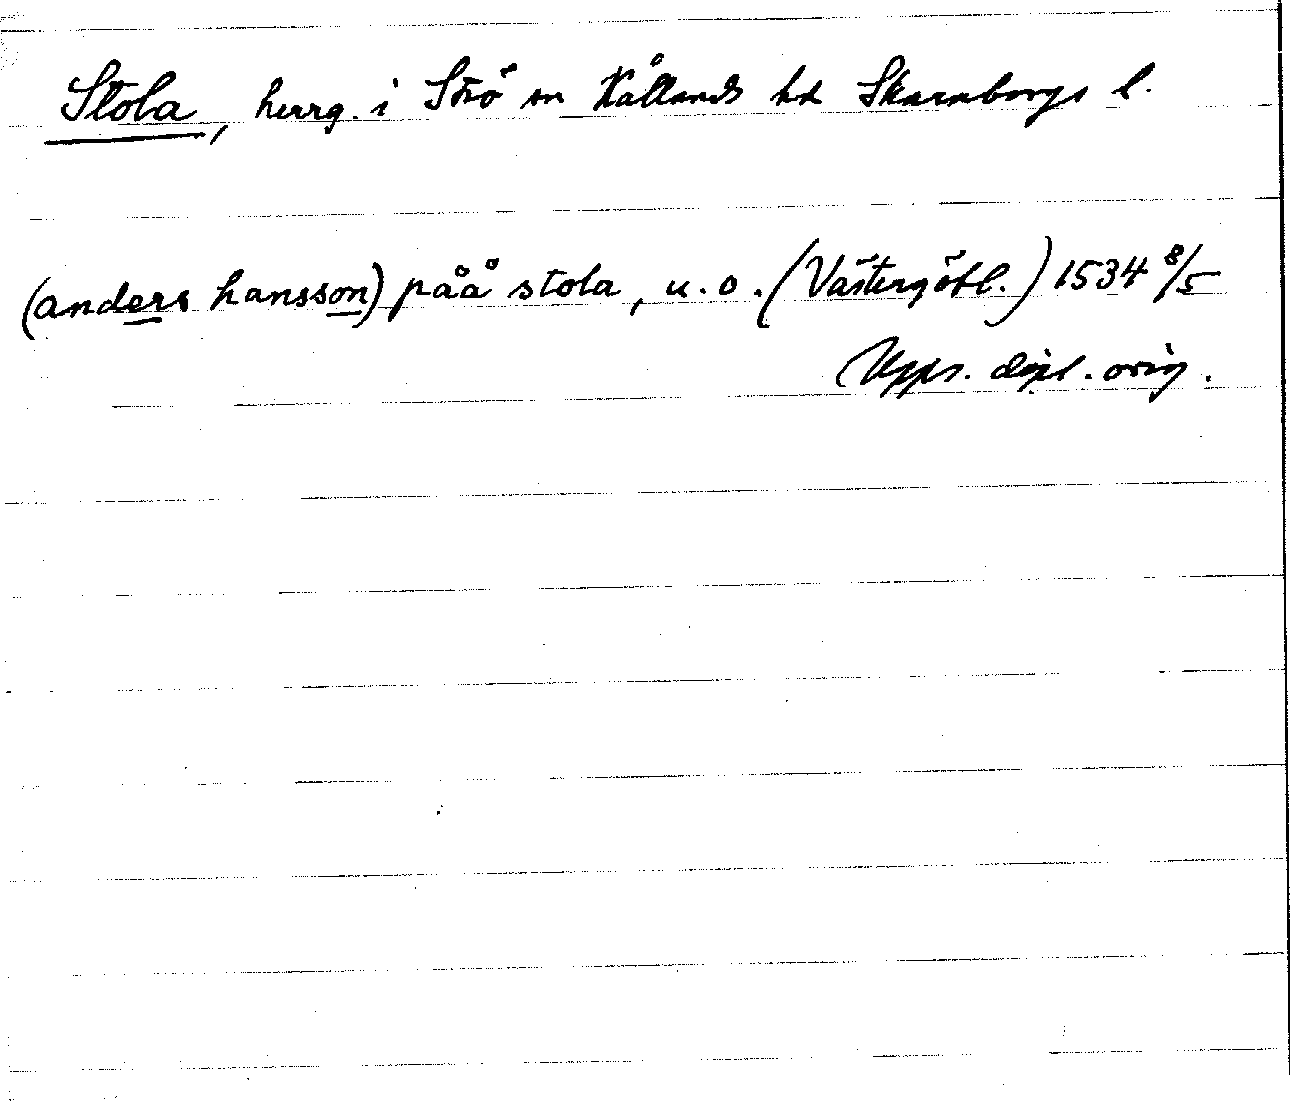 Stola, herrg. i Strö sn Kållands hd Skaraborgs l.
(anders hansson) påå stola, u. o. (Västergötl.) 1534 8/5
Upps. dipl. orig.